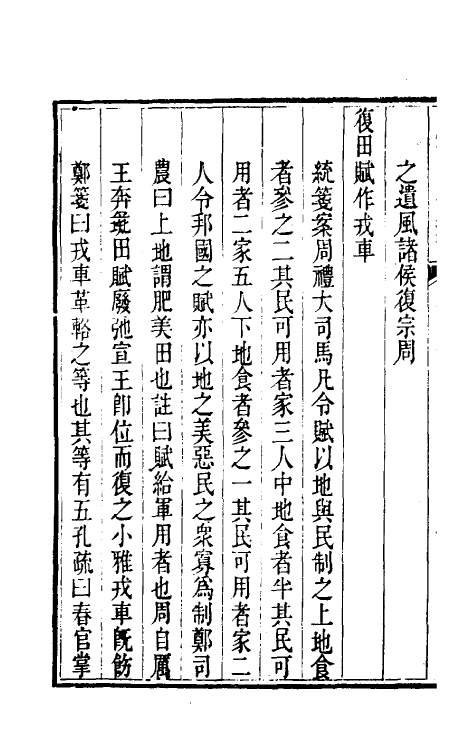 之遺風諸侯復宗周
復田賦作戎車
統箋案周禮大司馬凡令賦以地與民制之上地食
者參之二其民可用者家三人中地食者半其民可
用者二家五人下地食者參之一其民可用者家二
人令邦國之賦亦以地之美惡民之衆寡爲制鄭司
農曰上地謂肥美田也註曰賦給軍用者也周自厲
王奔彘田賦廢弛宣王卽位而復之小雅戎車旣飭
鄭箋曰戎車革輅之等也其等有五孔疏曰春官掌